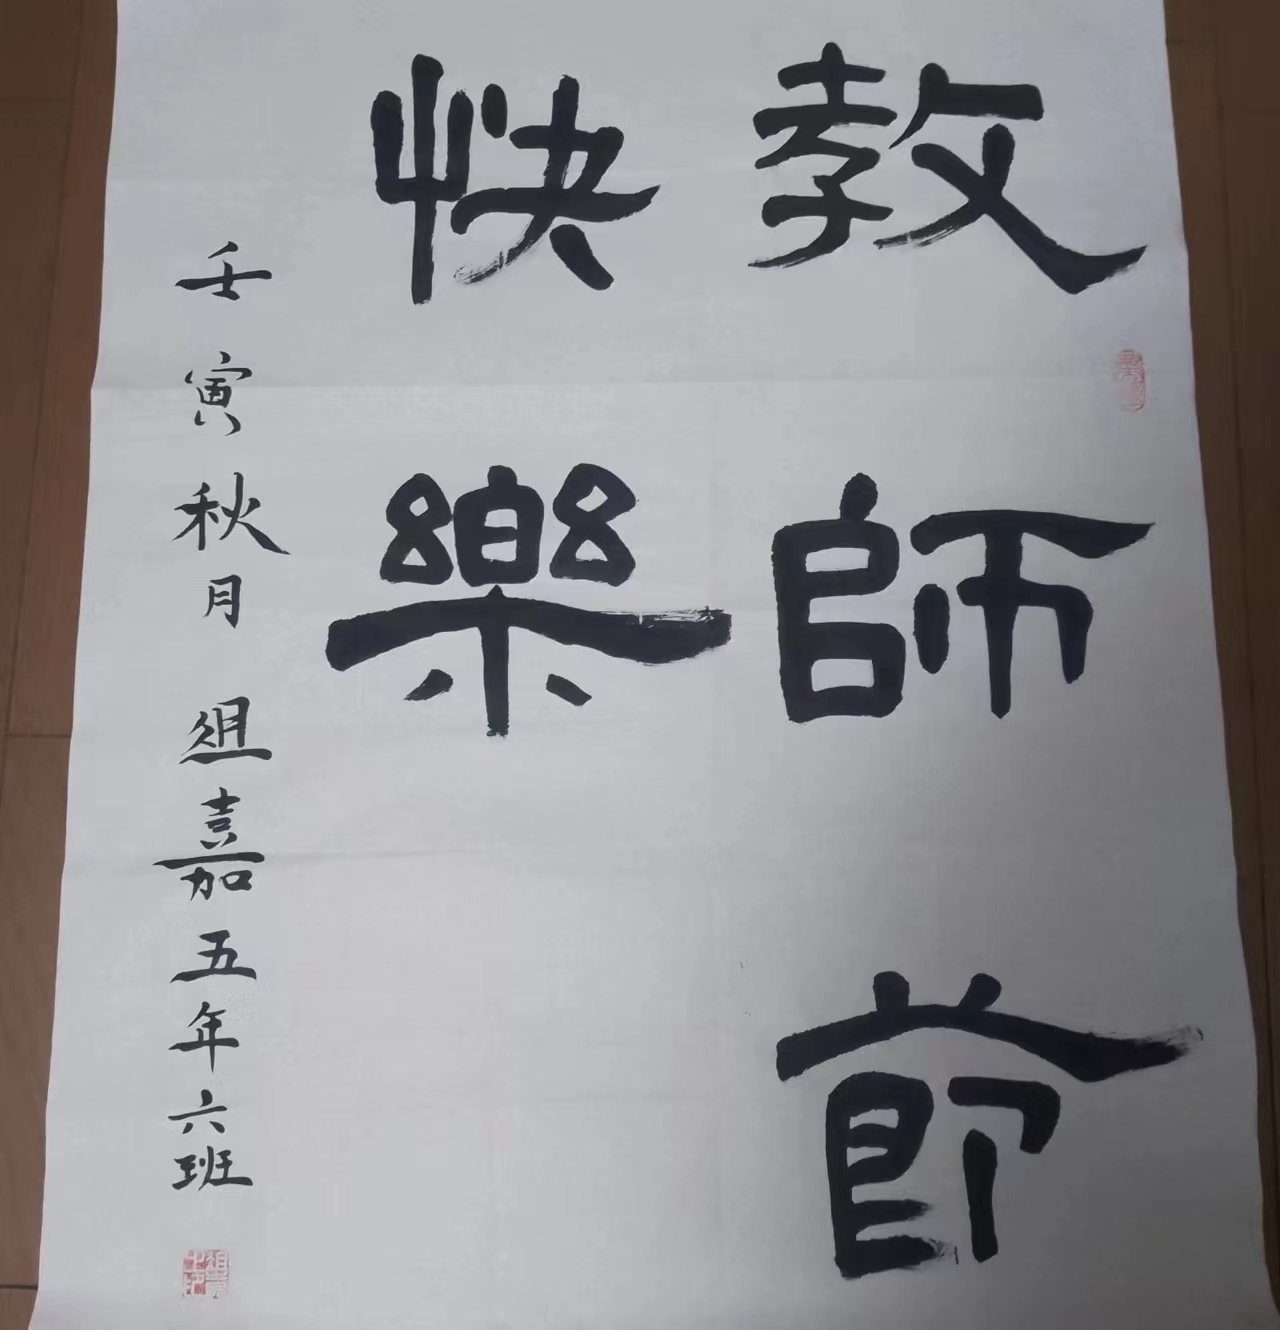 教師節
快樂
壬寅秋月 俎嘉五年六班